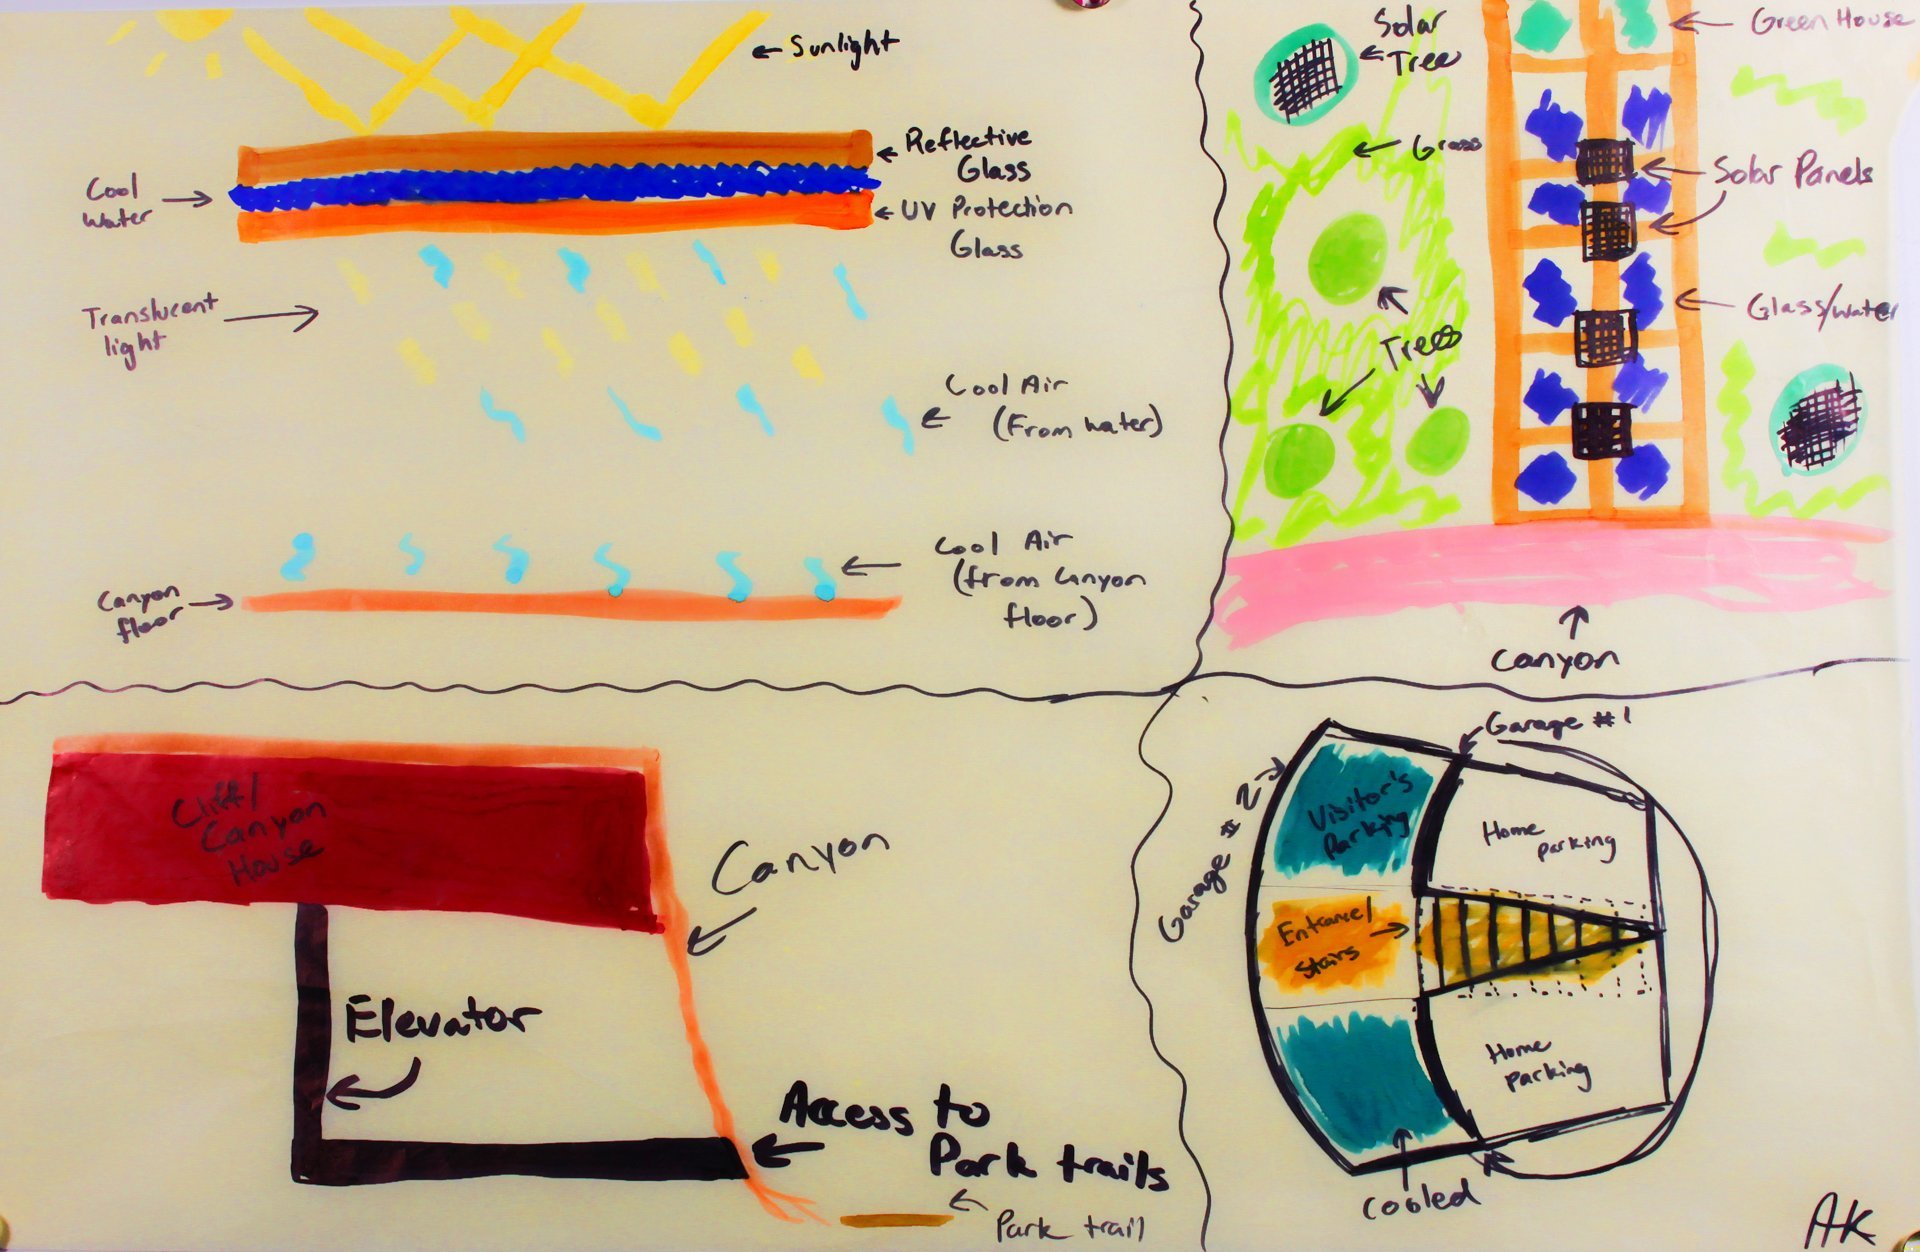 Sunlight
Reflective
Glass
Cool
Water
UV Protection
Glass
Translucent
light
Cool Air
(From water)
Cool Air
(from Canyon
floor)
Canyon
floor
Solar
Tree
Green House
Grass
Solar Panels
Trees
Glass/water
Canyon
Cliff/
Canyon
House
Canyon
Elevator
Access to
Park trails
Park trail
Garage #1
Garage #2
Visitor's
Parking
Home
parking
Entrance/
Stairs
Home
parking
Cooled
AK